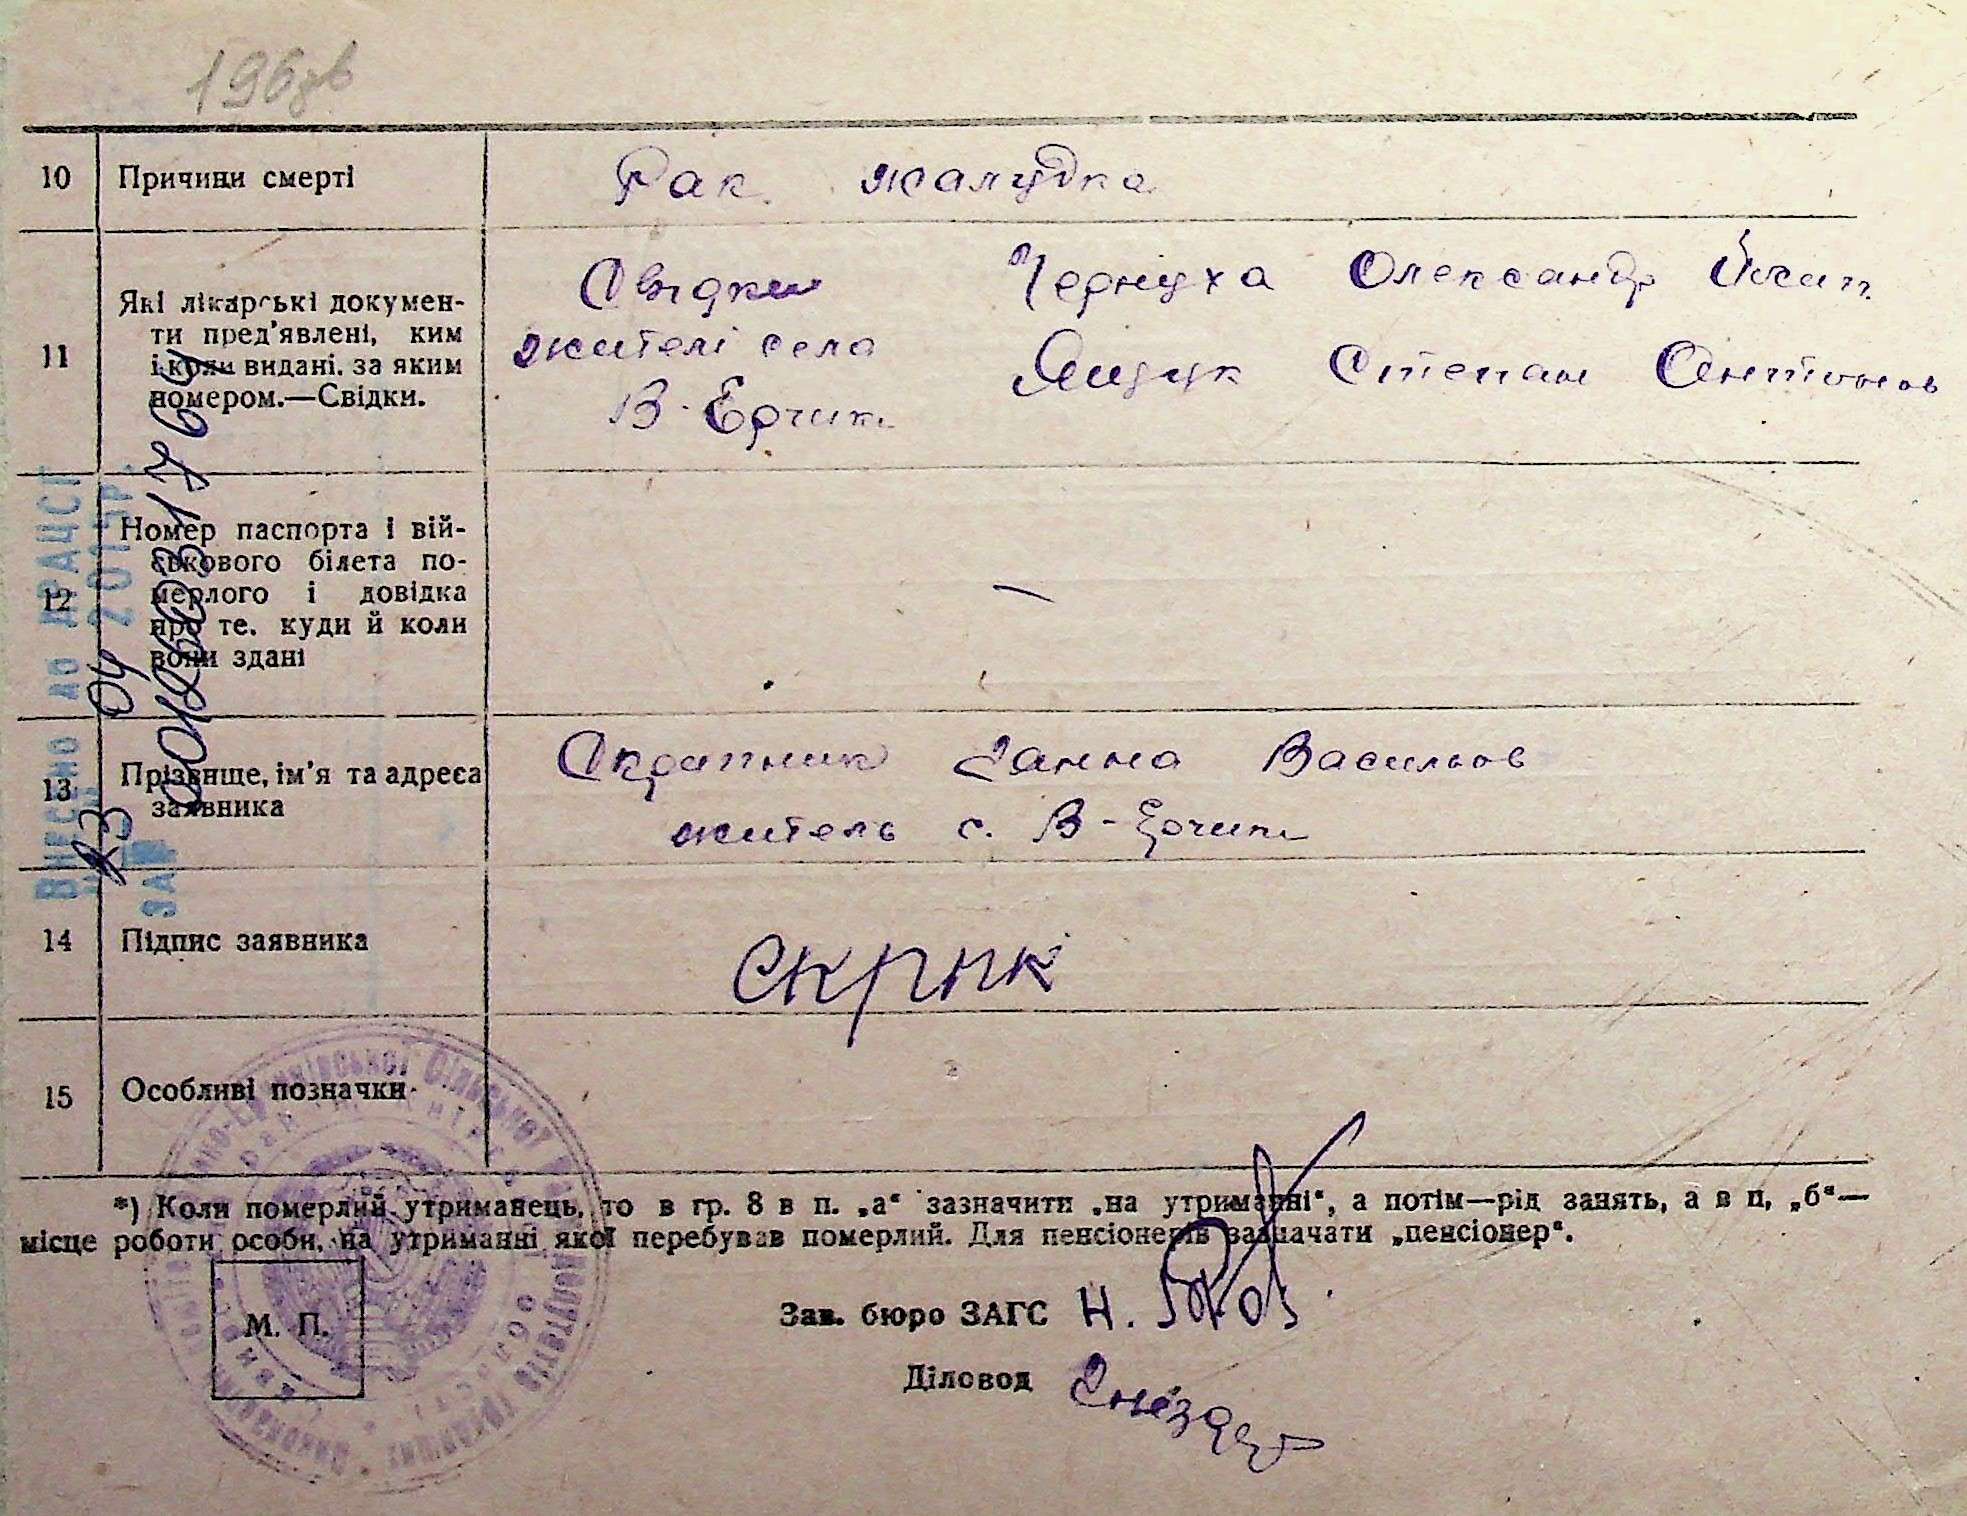 196зв
10 Причини смерті Рак жалудка
11 Які лікарські докумен-
ти пред'явлені, ким
і коли видані. за яким
номером.—Свідки.
Свідки Чернуха Олександр Йосип.
жителі села Ящук Степан Антонов
В-Ерчик.
12 Номер паспорта і вій-
ськового білета по-
мерлого і довідка
про те. куди й коли
вони здані
—
13 Прізвище, ім'я та адреса
заявника
Скрипник Ганна Васильов
житель с. В-Ерчик
14 Підпис заявника скрпк
15 Особливі позначки
*) Коли померлий утриманець, то в гр. 8 в п. „а“ зазначити „на утриманні“, а потім—рід занять, а в п, „б“—
місце роботи особи, на утриманні якої перебував померлий. Для пенсіонерів зазначати „пенсіонер“.
М. П.
Зав. бюро ЗАГС Н.
Діловод
Внесено до ДРАЦСГ
23 04 2015р.
ЗА № 00126031769
Сільської
депутатів трудящих